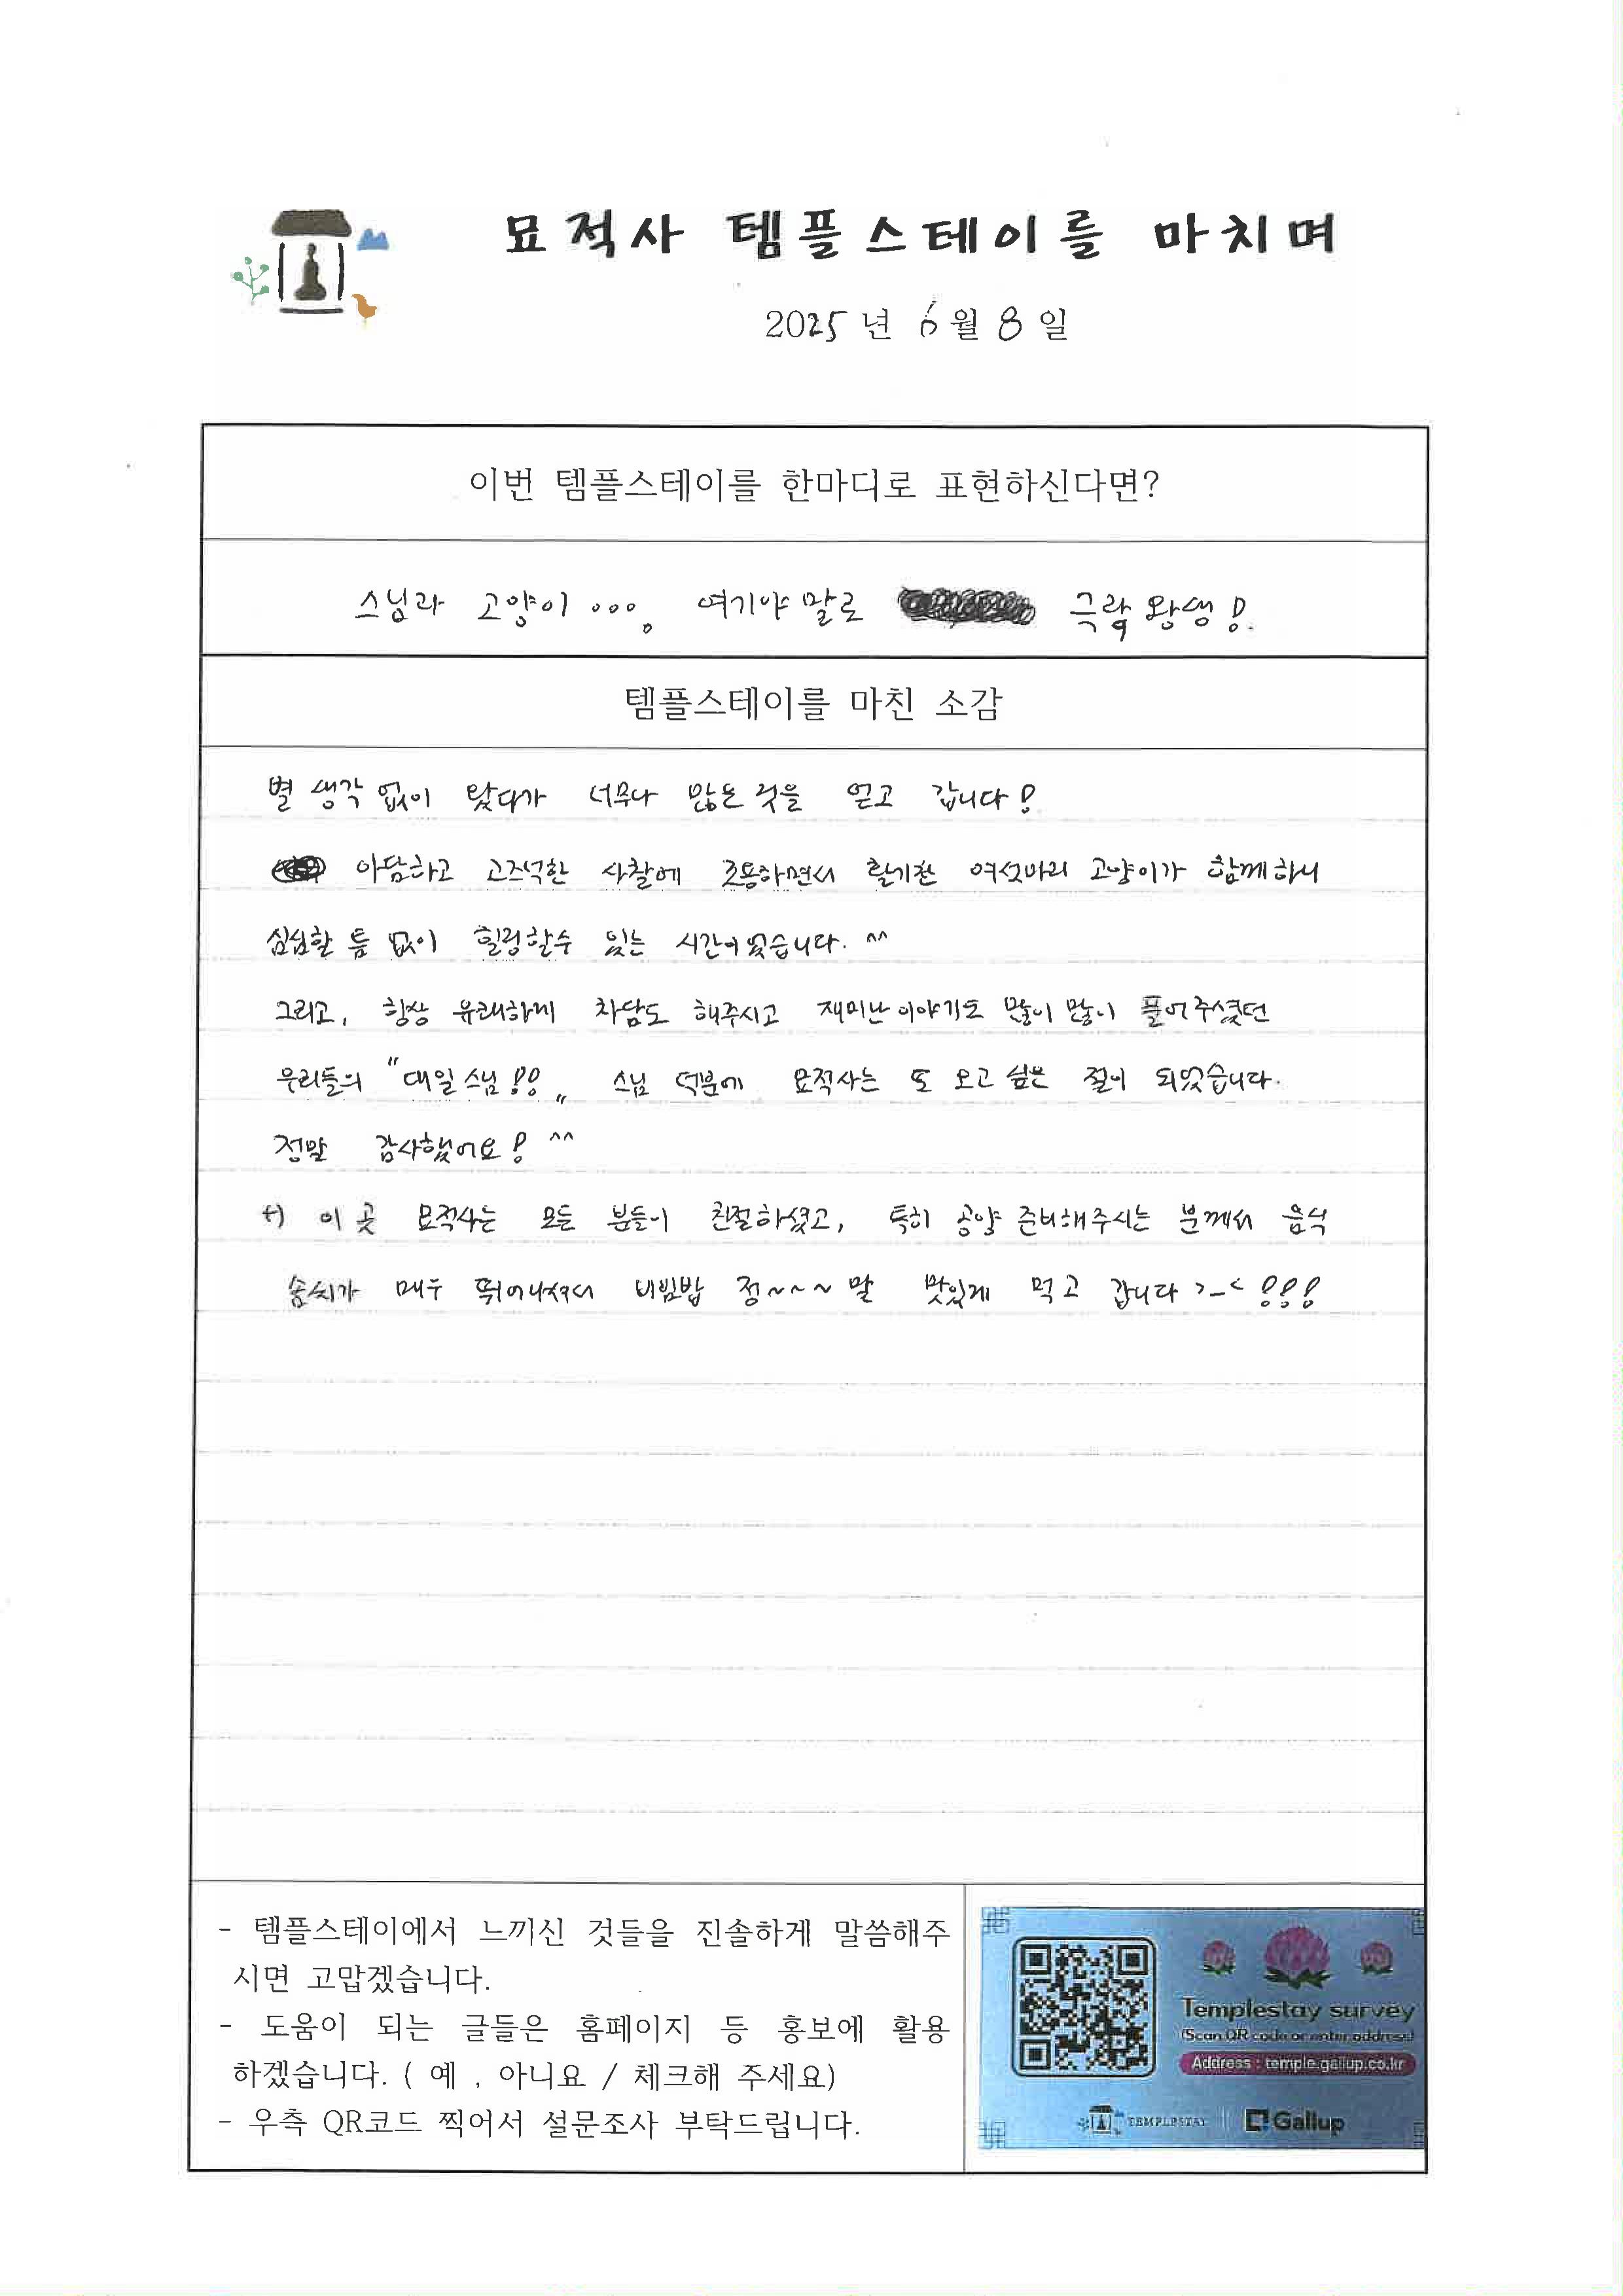 묘적사 템플스테이를 마치며
2025년 6월 8일
이번 템플스테이를 한마디로 표현하신다면?
스님과 고양이 ...。 여기야말로 극락왕생!
템플스테이를 마친 소감
별 생각 없이 왔다가 너무나 많은 것을 얻고 갑니다!
아담하고 고즈넉한 사찰에 조용하면서 활기찬 여섯마리 고양이가 함께하니
심심할 틈 없이 힐링할수 있는 시간이었습니다. ^^
그리고, 항상 유쾌하게 차담도 해주시고 재미난 이야기도 많이 많이 풀어주셨던
우리들의 "대일스님!!„ 스님 덕분에 묘적사는 또 오고 싶은 절이 되었습니다.
정말 감사했어요! ^^
+) 이 곳 묘적사는 모든 분들이 친절하셨고, 특히 공양 준비해주시는 분께서 음식
솜씨가 매우 뛰어나셔서 비빔밥 정~~~말 맛있게 먹고 갑니다 >_< !!!
- 템플스테이에서 느끼신 것들을 진솔하게 말씀해주
시면 고맙겠습니다.
- 도움이 되는 글들은 홈페이지 등 홍보에 활용
하겠습니다. ( 예 , 아니요 / 체크해 주세요)
- 우측 QR코드 찍어서 설문조사 부탁드립니다.
Templestay survey
(Scan QR code or enter address)
Address : temple.gallup.co.kr
TEMPLESTAY Gallup